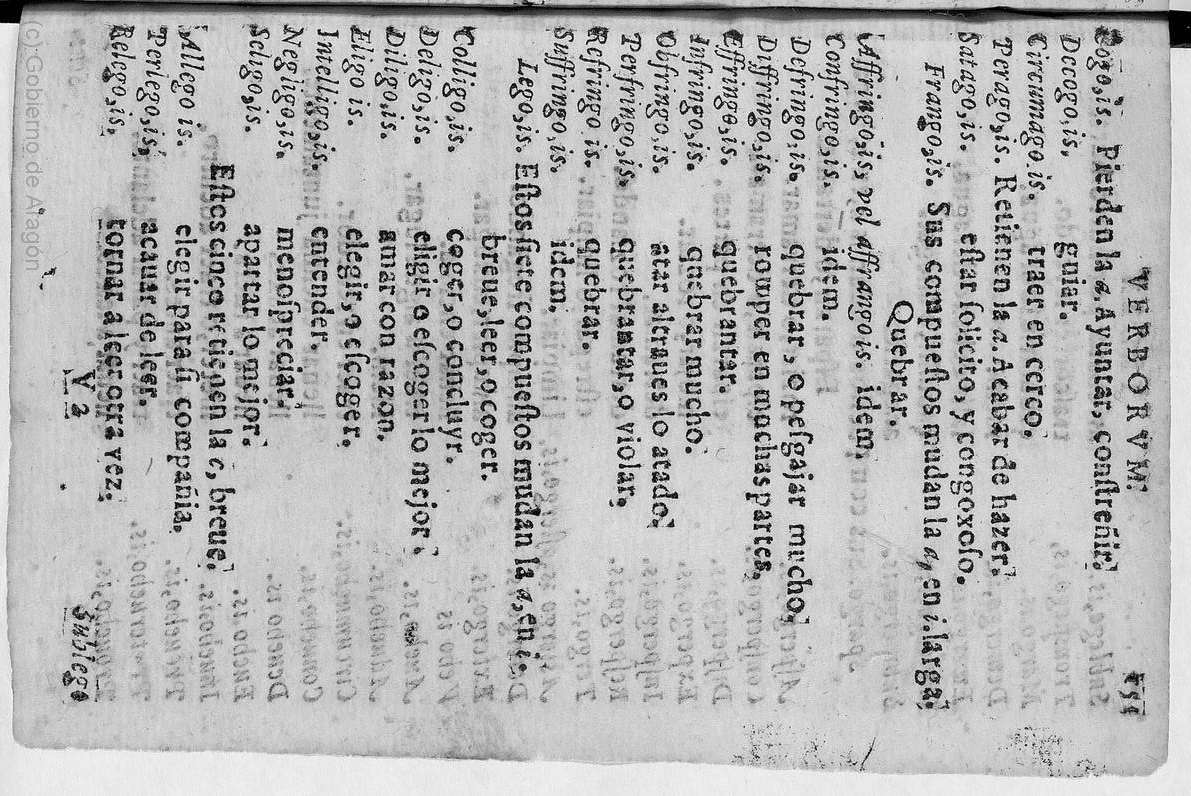 VERBORVM.
Cogo,is. Pierden la a. Ayuntar, conſtreñir.
Decogo,is, guiar.
Circumago is. traer en cerco.
Perago,is. Retienen la a. Acabar de hazer.
Satago,is. eſtar ſolicito, y congoxoſo.
Frango,is. Sus compueſtos mudan la a, en i. larga.
Quebrar.
Affringo,is, vel affrango is. idem
Confringo,is. idem.
Defringo,is. quebrar, o peſgajar mucho.
Diffringo,is. romper en muchas partes,
Effringo,is. quebrantar.
Infringo,is. quebrar mucho.
Obfringo,is. atar al traues lo atado.
Perfringo,is. quebrantar, o violar,
Refringo is. quebrar.
Suffringo,is. idem.
Lego,is. Eſtos ſiete compueſtos mudan la a, en i.
breue, leer, o coger.
Colligo,is. coger, o concluyr.
Deligo,is. eligir o eſcoger lo mejor.
Diligo,is. amar con razon.
Eligo is. elegir, o eſcoger.
Intelligo,is. entender.
Negligo,is. menoſpreciar.
Seligo,is. apartar lo mejor.
Eſtos cinco retienen la e, breue.
Allego is. elegir para ſi compañia.
Perlego,is, acauar de leer.
Relego,is. tornar a leer otra vez.
V 2
Sublego
(c) Gobierno de Aragón